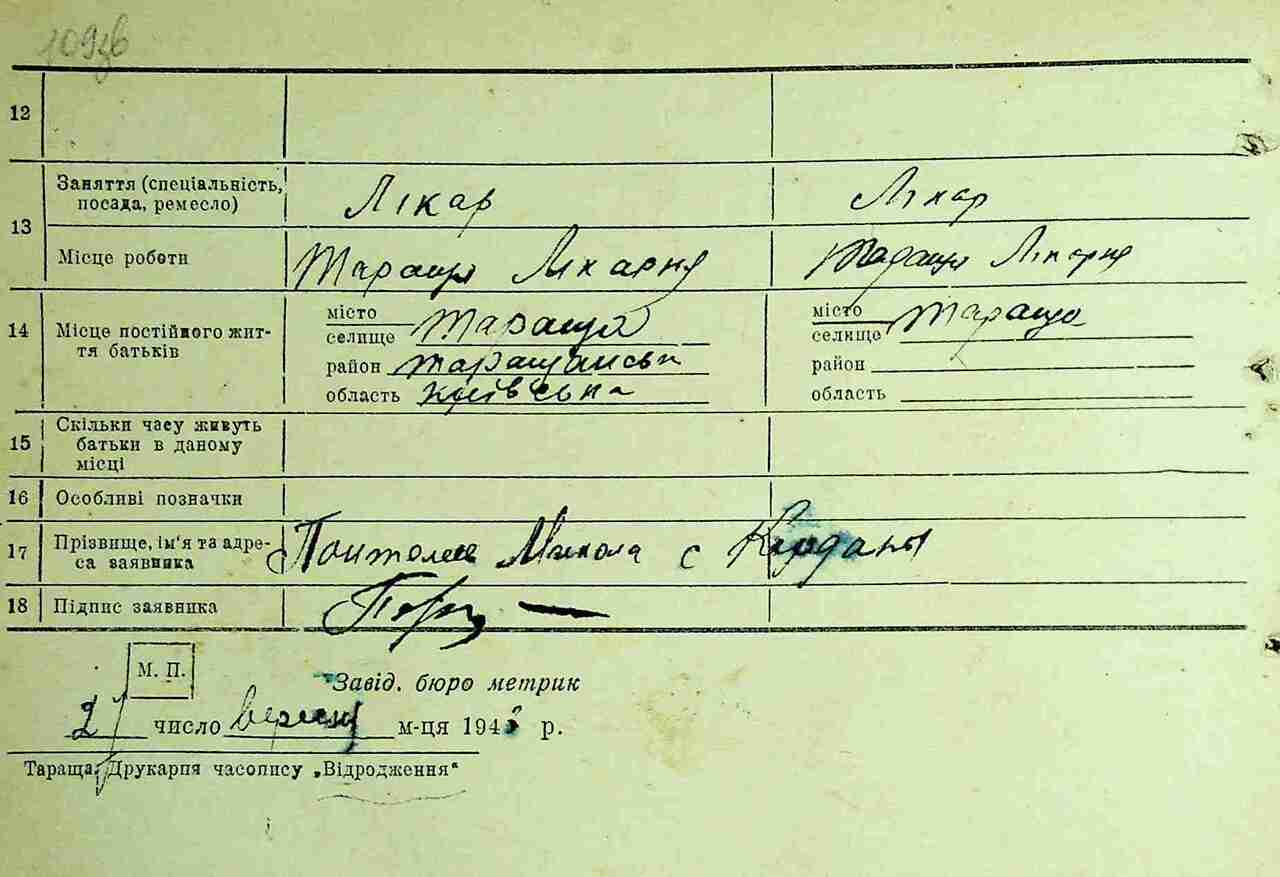 12
13 Заняття (спеціальність, Лікар Лікар
посада, ремесло)
Місце роботи Тараща Лікарня Тараща Лікарня
14 Місце постійного жит-
тя батьків
місто
селище Тараща
район Таращанськ
область Київська
місто
селище Тараща
район
область
15 Скільки часу живуть
батьки в даному
місці
16 Особливі позначки
17 Прізвище, ім'я та адре-
са заявника Микола с
18 Підпис заявника
М. П.
Завід. бюро метрик
число м-ця 194 р.
Тараща, Друкарня часопису „Відродження“